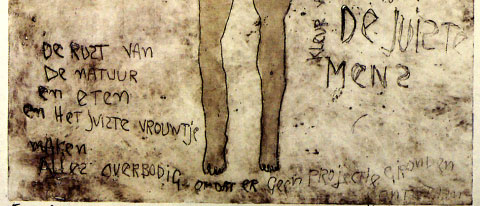 De rust van
De natuur
en eten
en Het juizte vrouwtje
maken
Alles overbodig omdat er geen projectie
Kleur
De juizte
Mens